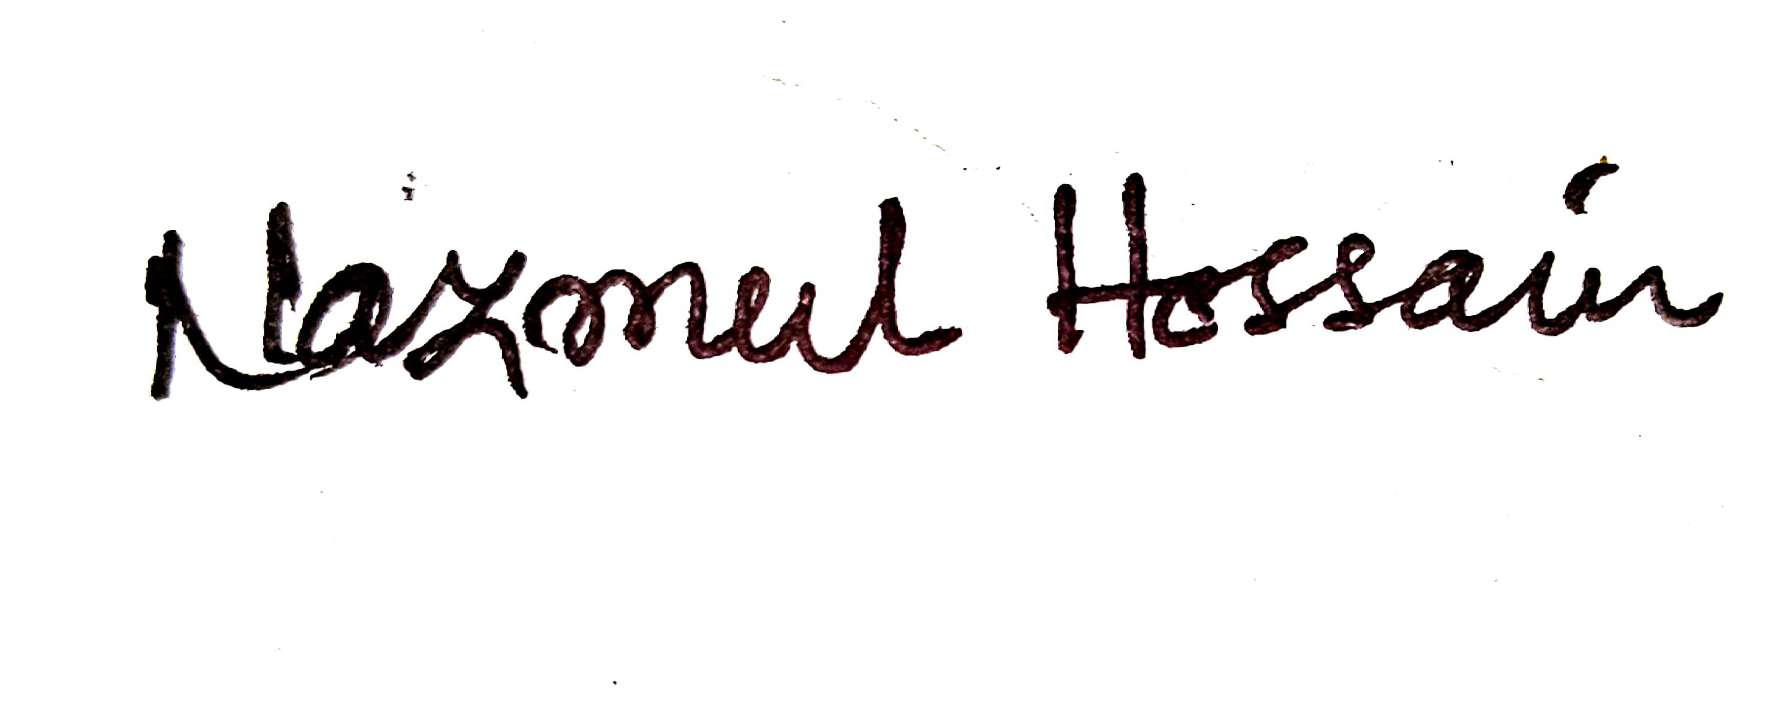 Nazmul Hossain